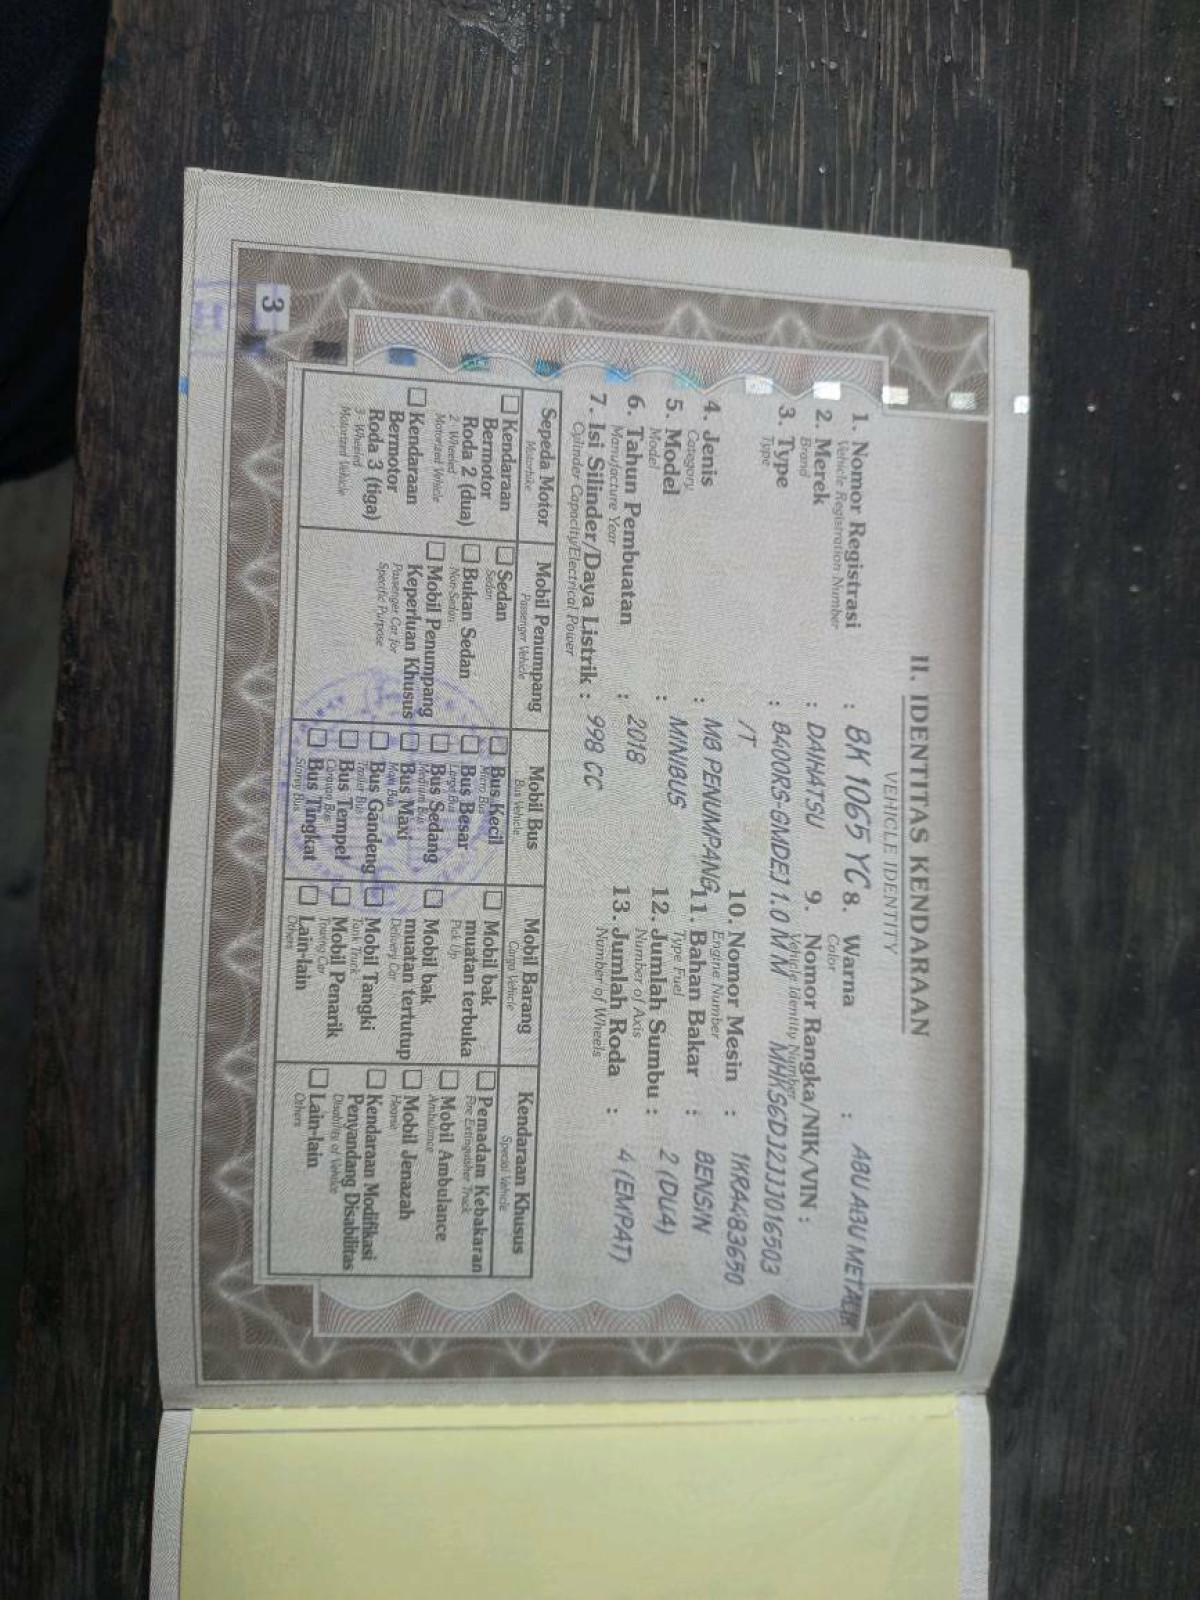 II. IDENTITAS KENDARAAN
VEHICLE IDENTITY
1. Nomor Registrasi : BK 1065 YC
Vehicle Registration Number
2. Merek : DAIHATSU
Brand
3. Type : B400RS-GMDEJ 1.0 M M
Type
/T
4. Jenis : MB PENUMPANG
Category
5. Model : MINIBUS
Model
6. Tahun Pembuatan : 2018
Manufacture Year
7. Isi Silinder/Daya Listrik : 998 CC
Cylinder Capacity/Electrical Power
8. Warna : ABU ABU METALIK
Color
9. Nomor Rangka/NIK/VIN :
Vehicle Identity Number
MHKS6DJ2JJJ016503
10. Nomor Mesin : 1KRA483650
Engine Number
11. Bahan Bakar : BENSIN
Type Fuel
12. Jumlah Sumbu : 2 (DUA)
Number of Axis
13. Jumlah Roda : 4 (EMPAT)
Number of Wheels
Sepeda Motor
Motorbike
Kendaraan
Bermotor
Roda 2 (dua)
2 - Wheeled
Motorized Vehicle
Kendaraan
Bermotor
Roda 3 (tiga)
3-Wheeled
Motorized Vehicle
Mobil Penumpang
Passenger Vehicle
Sedan
Sedan
Bukan Sedan
Non-Sedan
Mobil Penumpang
Keperluan Khusus
Passenger Car for
Specific Purpose
Mobil Bus
Bus Vehicle
Bus Kecil
Micro Bus
Bus Besar
Large Bus
Bus Sedang
Medium Bus
Bus Maxi
Maxi Bus
Bus Gandeng
Bus Tempel
Bus Tingkat
Storey Bus
Mobil Barang
Cargo Vehicle
Mobil bak
muatan terbuka
Pick Up
Mobil bak
muatan tertutup
Delivery Car
Mobil Tangki
Tank Truck
Mobil Penarik
Towing Car
Lain-lain
Others
Kendaraan Khusus
Special Vehicle
Pemadam Kebakaran
Fire Extinguisher Truck
Mobil Ambulance
Ambulance
Mobil Jenazah
Hearse
Kendaraan Modifikasi
Penyandang Disabilitas
Disability of Vehicle
Lain-lain
Others
3